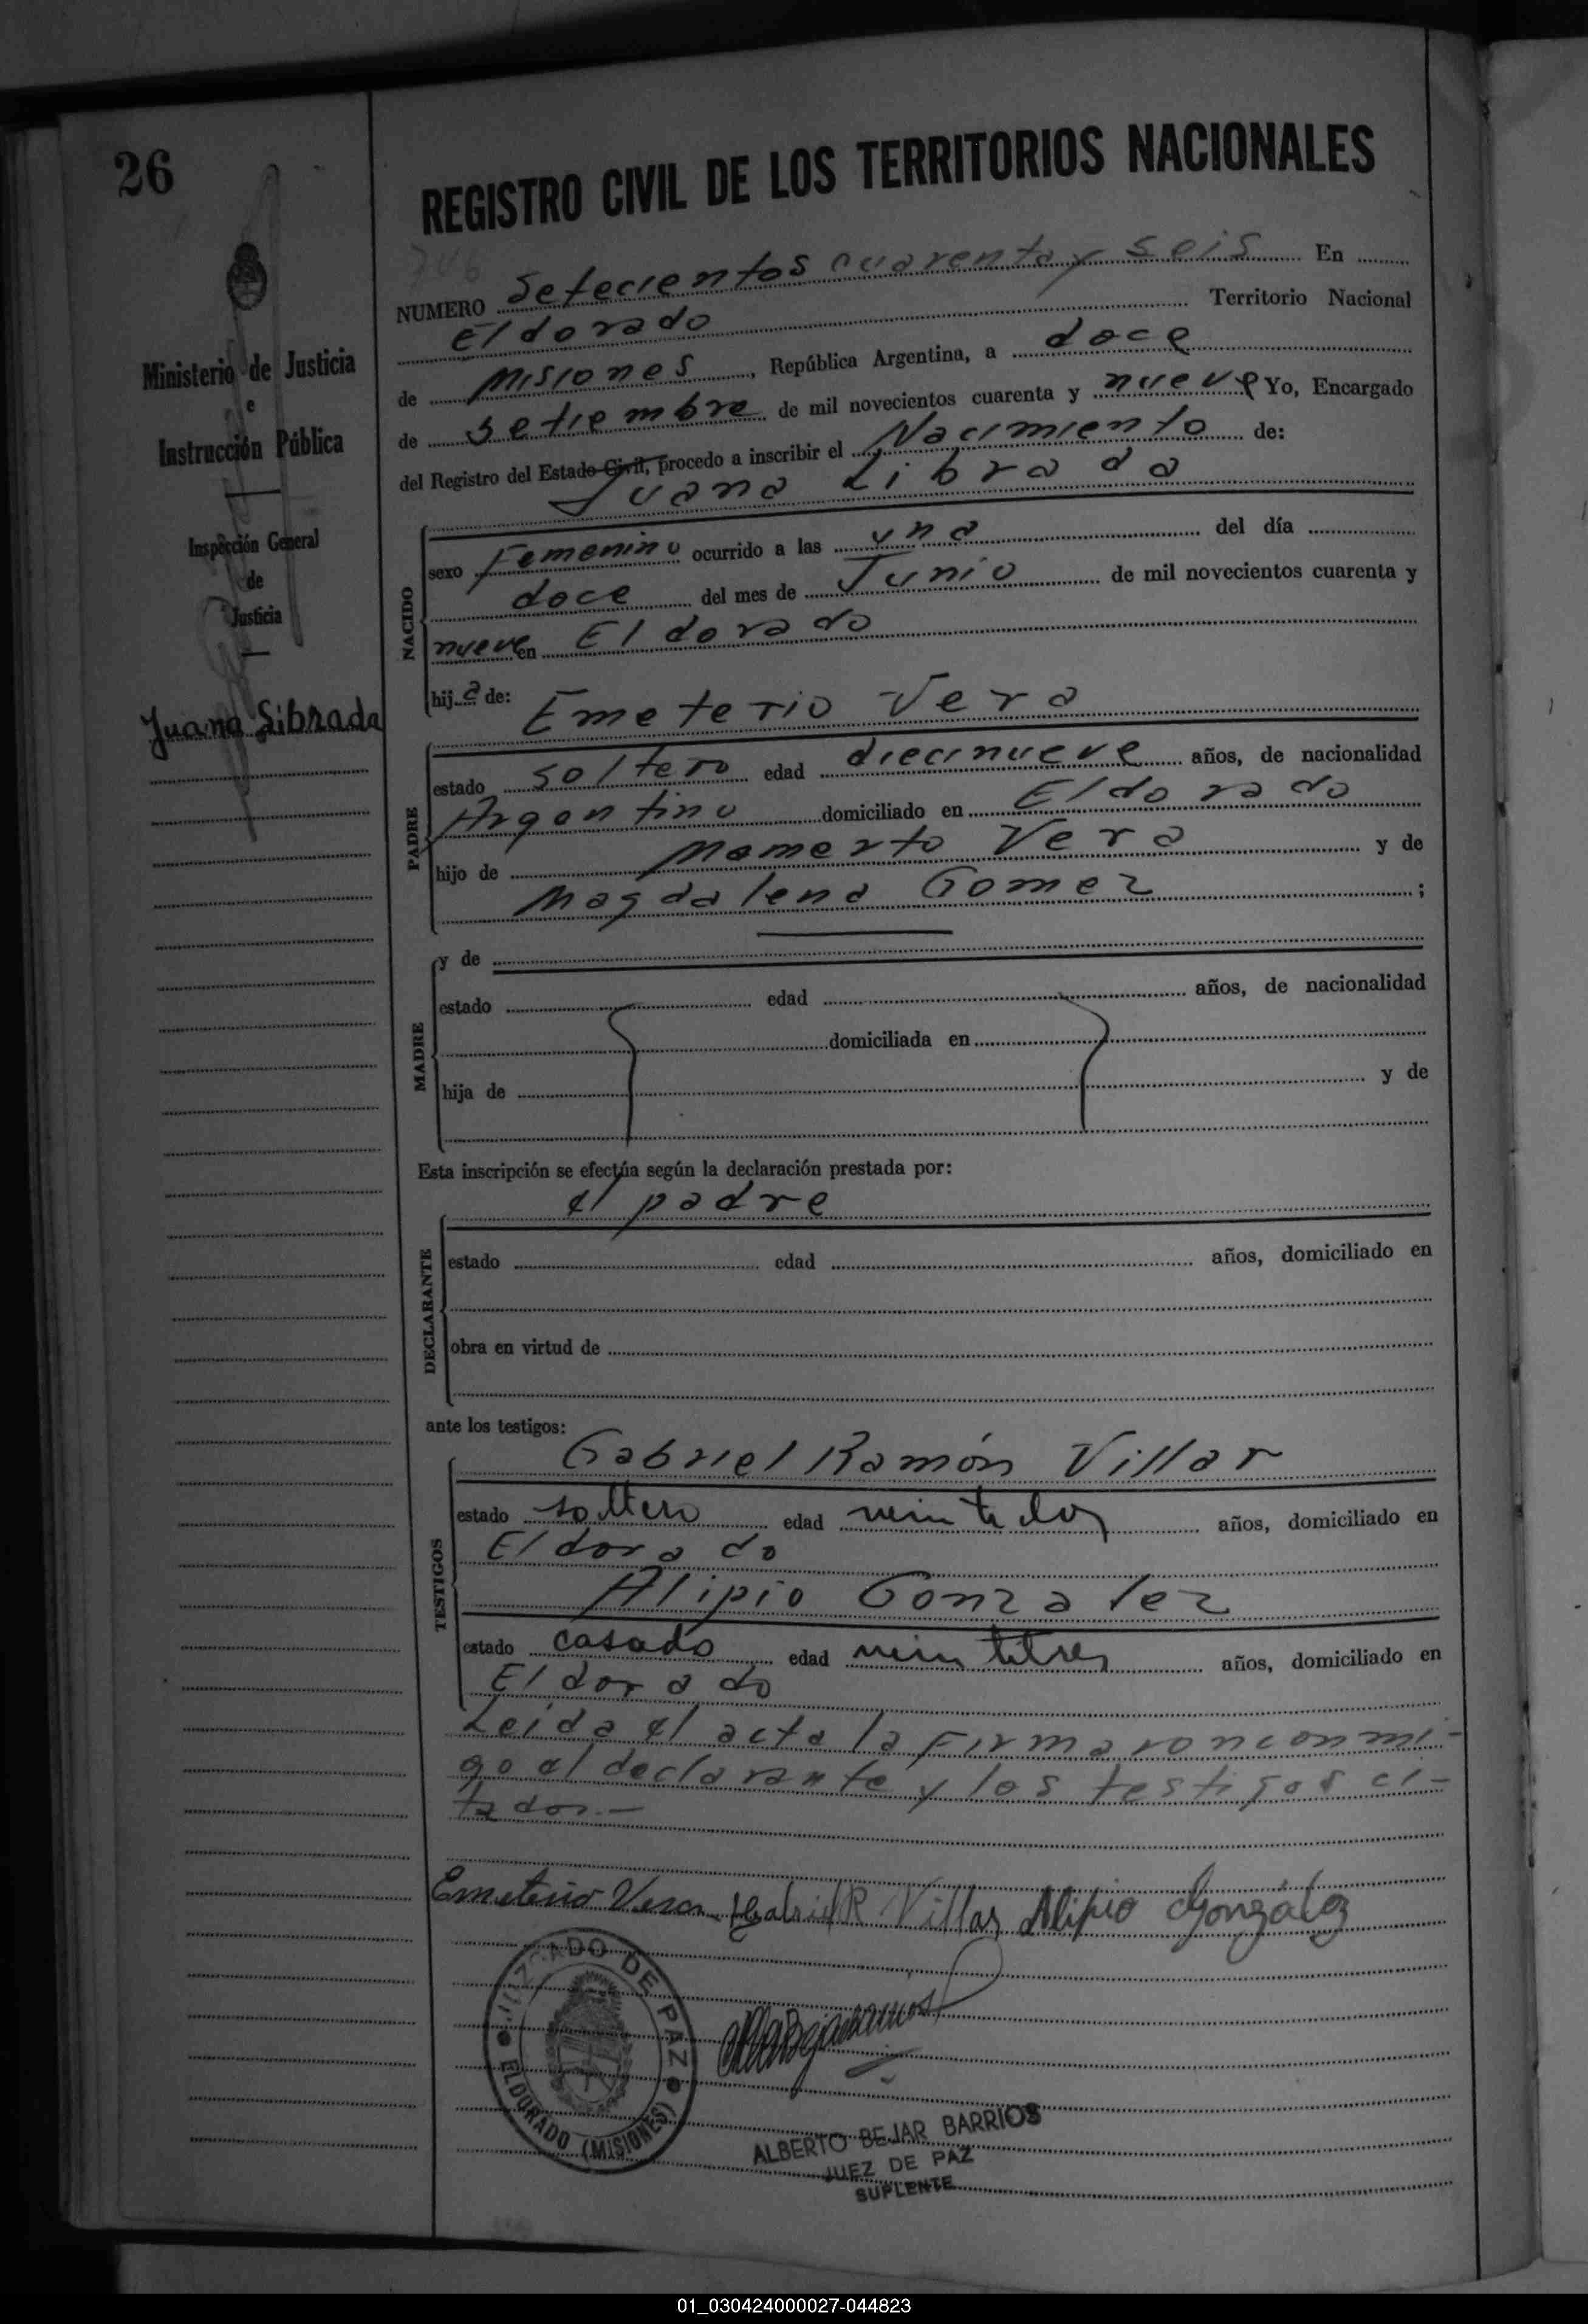 26
REGISTRO CIVIL DE LOS TERRITORIOS NACIONALES
746
NUMERO Setecientos cuarenta y seis En
Eldorado Territorio Nacional
de Misiones, República Argentina, a doce
de setiembre de mil novecientos cuarenta y nueve Yo, Encargado
del Registro del Estado Civil, procedo a inscribir el Nacimiento de:
Juana Librada
NACIDO
sexo Femenino ocurrido a las una del día
doce del mes de Junio de mil novecientos cuarenta y
nueve en Eldorado
hij a de: Emeterio Vera
PADRE
estado soltero edad diecinueve años, de nacionalidad
Argentino domiciliado en Eldorado
hijo de Mamerto Vera y de
Magdalena Gomez ;
MADRE
y de
estado edad años, de nacionalidad
domiciliada en
hija de y de
Esta inscripción se efectúa según la declaración prestada por:
el padre
DECLARANTE
estado edad años, domiciliado en
obra en virtud de
ante los testigos:
TESTIGOS
Gabriel Ramón Villar
estado soltero edad veintidos años, domiciliado en
Eldorado
Alipio Gonzalez
estado casado edad veintitres años, domiciliado en
Eldorado
Leida el acta la firmaron conmi-
go el declarante y los testigos ci-
tados.—
Emeterio Vera Gabriel R Villar Alipio González
JUZGADO DE PAZ
ELDORADO (MISIONES)
ALBERTO BEJAR BARRIOS
JUEZ DE PAZ
SUPLENTE
Ministerio de Justicia
e
Instrucción Pública
Inspección General
de
Justicia
Juana Librada
01_030424000027-044823